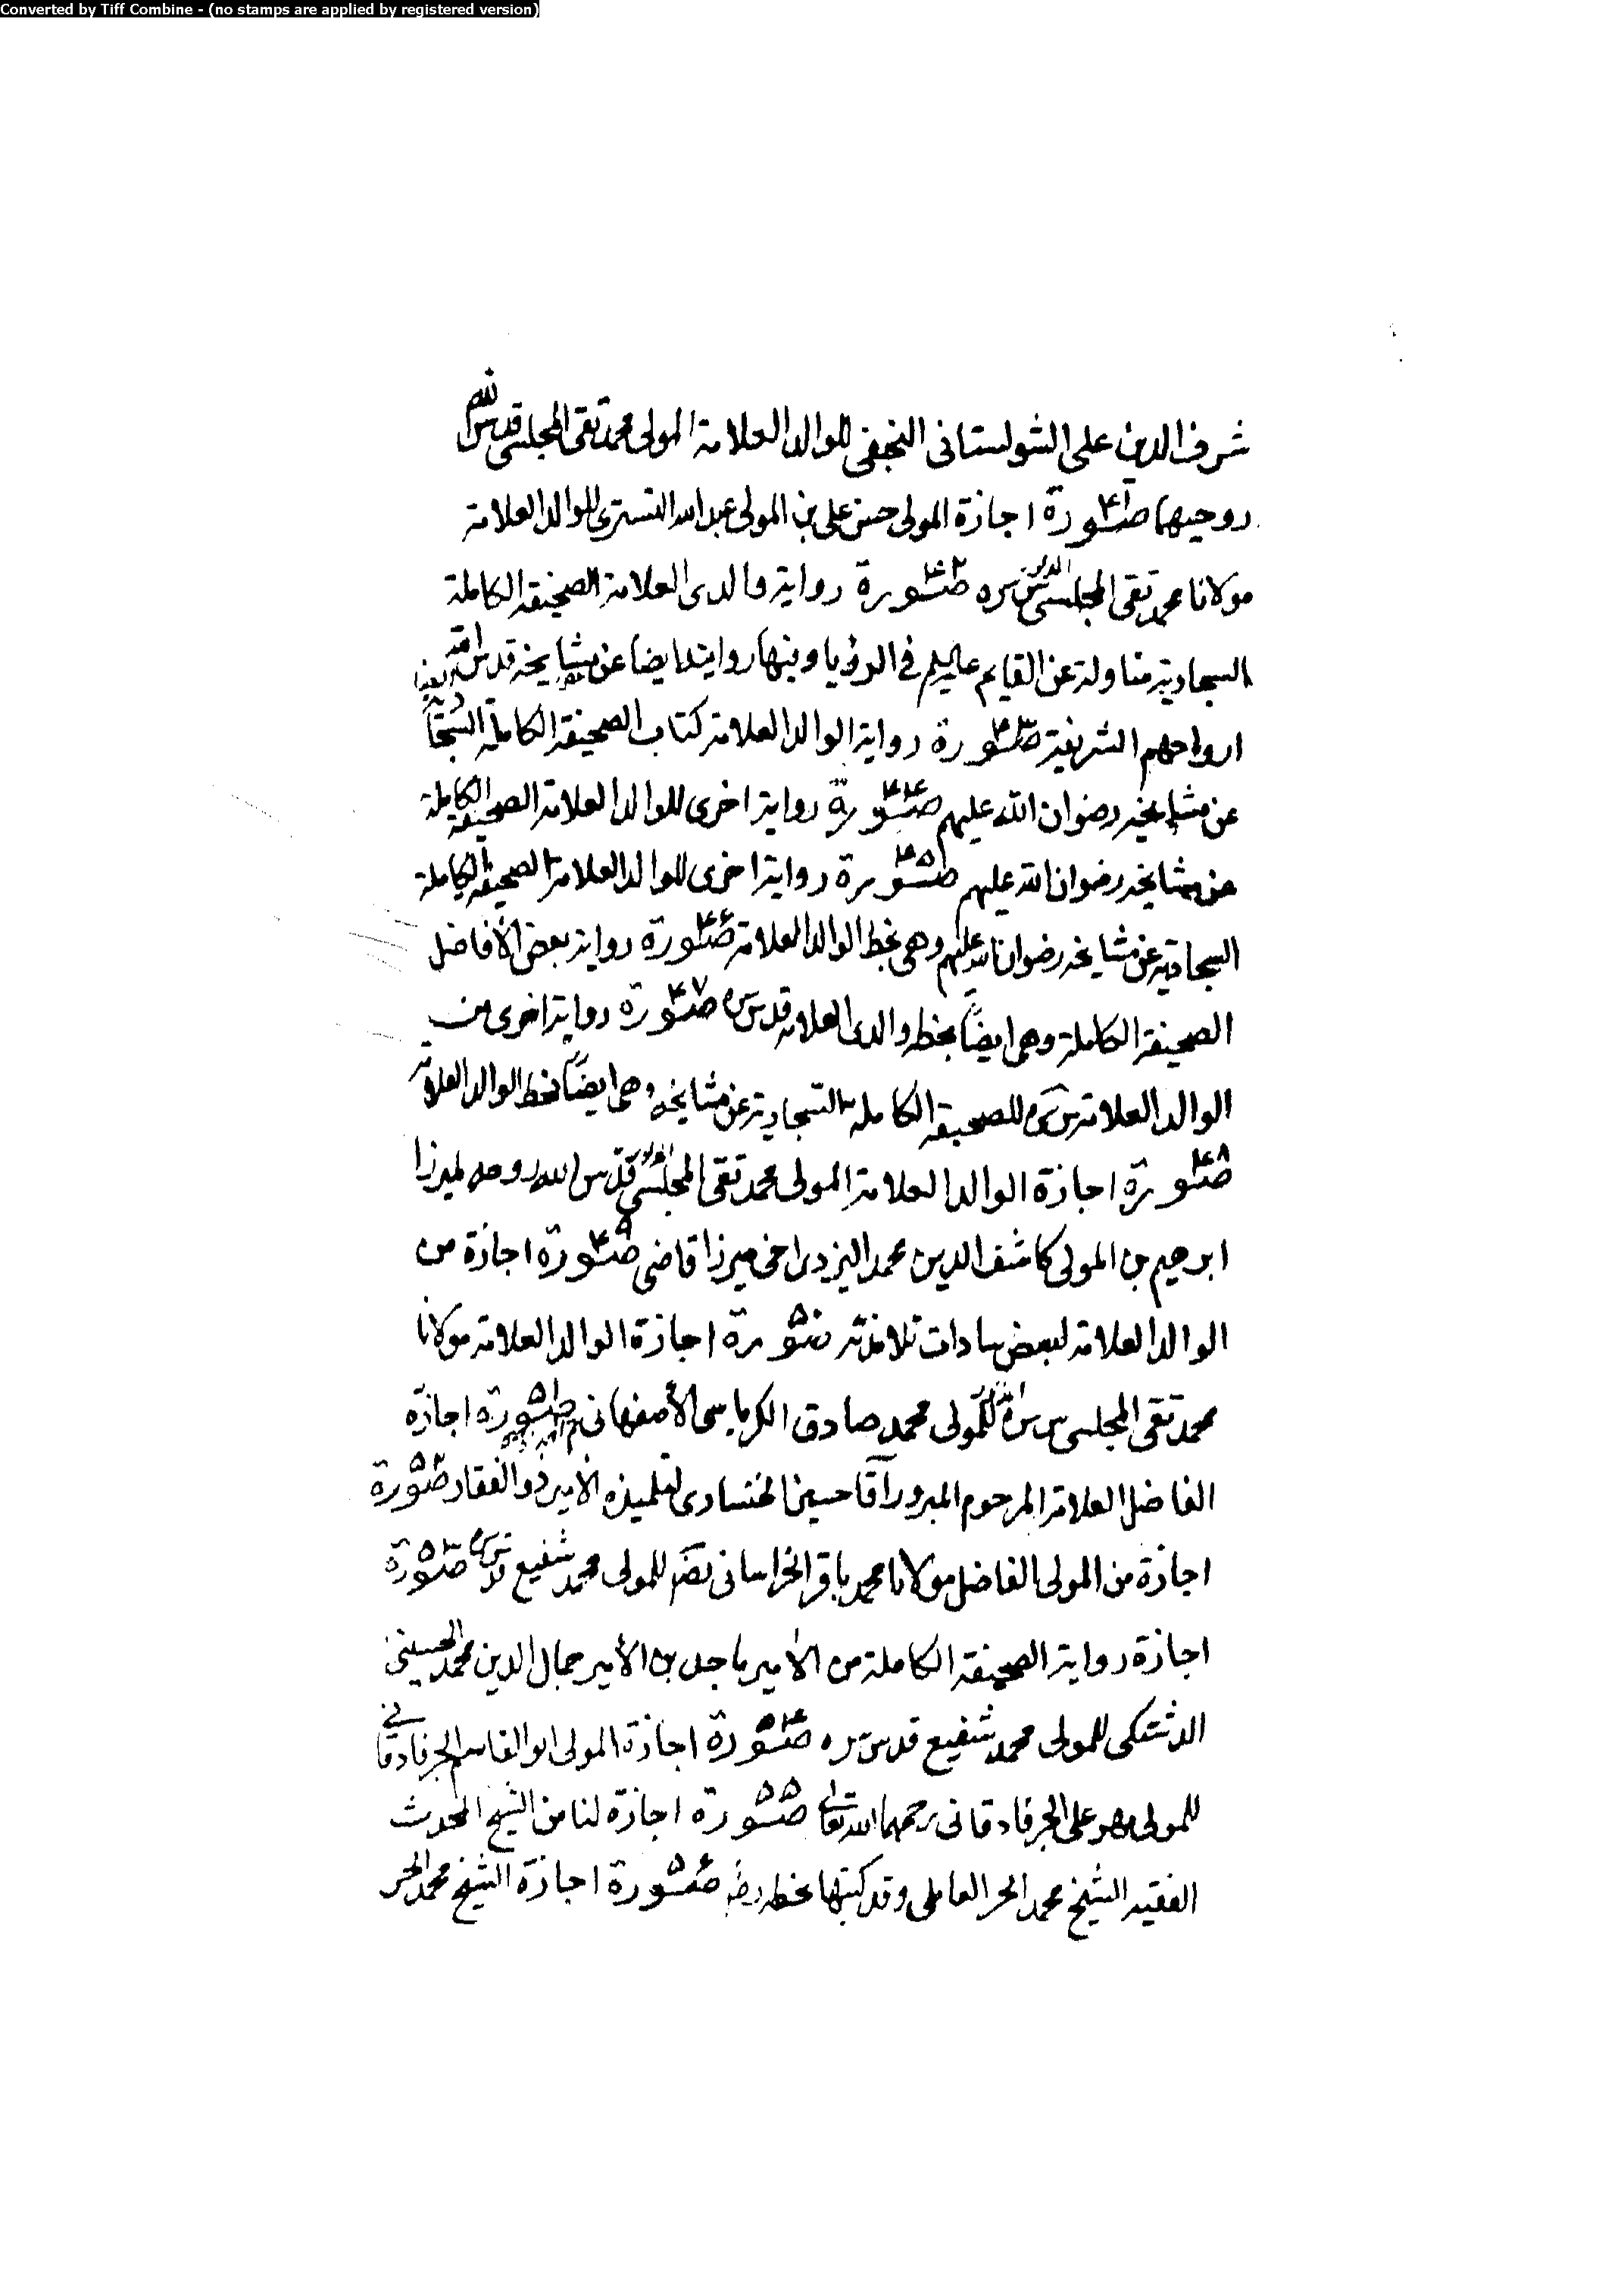 Converted by Tiff Combine - (no stamps are applied by registered version)
شرف الدين على الشولستانى النجفى للوالد العلامة المولى محمد تقى المجلسى قدس الله
روحيهما صورة ۴۱ اجازة المولى حسن على بن المولى عبد الله التسترى للوالد العلامة
مولانا محمد تقى المجلسى قدس سره صورة ۴۲ رواية والدى العلامة الصحيفة الكاملة
السجادية مناولة عن القايم عليه السلم فى الرؤيا وفيها روايته ايضا عن مشايخه قدس الله
ارواحهم الشريفة صورة ۴۳ رواية الوالد العلامة كتاب الصحيفة الكاملة السجادية
عن مشايخه رضوان الله عليهم صورة ۴۴ رواية اخرى للوالد العلامة الصحيفة الكاملة
عن مشايخه رضوان الله عليهم صورة ۴۵ رواية اخرى للوالد العلامة الصحيفة الكاملة
السجادية عن مشايخه رضوان الله عليهم وهى بخط الوالد العلامة صورة ۴۶ رواية بعض الأفاضل
الصحيفة الكاملة وهى ايضاً بخط والدى العلامة قدس سره صورة ۴۷ رواية اخرى من
الوالد العلامة س سره للصحيفة الكاملة السجادية عن مشايخه وهى ايضاً بخط الوالد العلامة
صورة ۴۸ اجازة الوالد العلامة المولى محمد تقى المجلسى قدس الله روحه لميرزا
ابرهيم بن المولى كاشف الدين محمد اليزدى اخى ميرزا قاضى صورة ۴۹ اجازة من
الوالد العلامة لبعض سادات تلامذته صورة ۵۰ اجازة الوالد العلامة مولانا
محمد تقى المجلسى س سره للمولى محمد صادق الكرباسى الأصفهانى صورة ۵۱ اجازة
الفاضل العلامة المرحوم المبرور آقا حسين الخنسارى لتلميذه الأمير ذو الفقار صورة ۵۲
اجازة من المولى الفاضل مولانا محمد باقر الخراسانى للمولى محمد شفيع قدس سره صورة ۵۳
اجازة رواية الصحيفة الكاملة من الأمير ماجد بن الأمير جمال الدين محمد الحسينى
الدشتكى للمولى محمد شفيع قدس سره صورة ۵۴ اجازة المولى ابو القاسم الجرفادقانى
للمولى مهر على الجرفادقانى رحمهما الله تعالى صورة ۵۵ اجازة لنا من الشيخ المحدث
الفقيه الشيخ محمد الحر العاملى وقد كتبها بخطه رضه صورة ۵۶ اجازة الشيخ محمد الحر